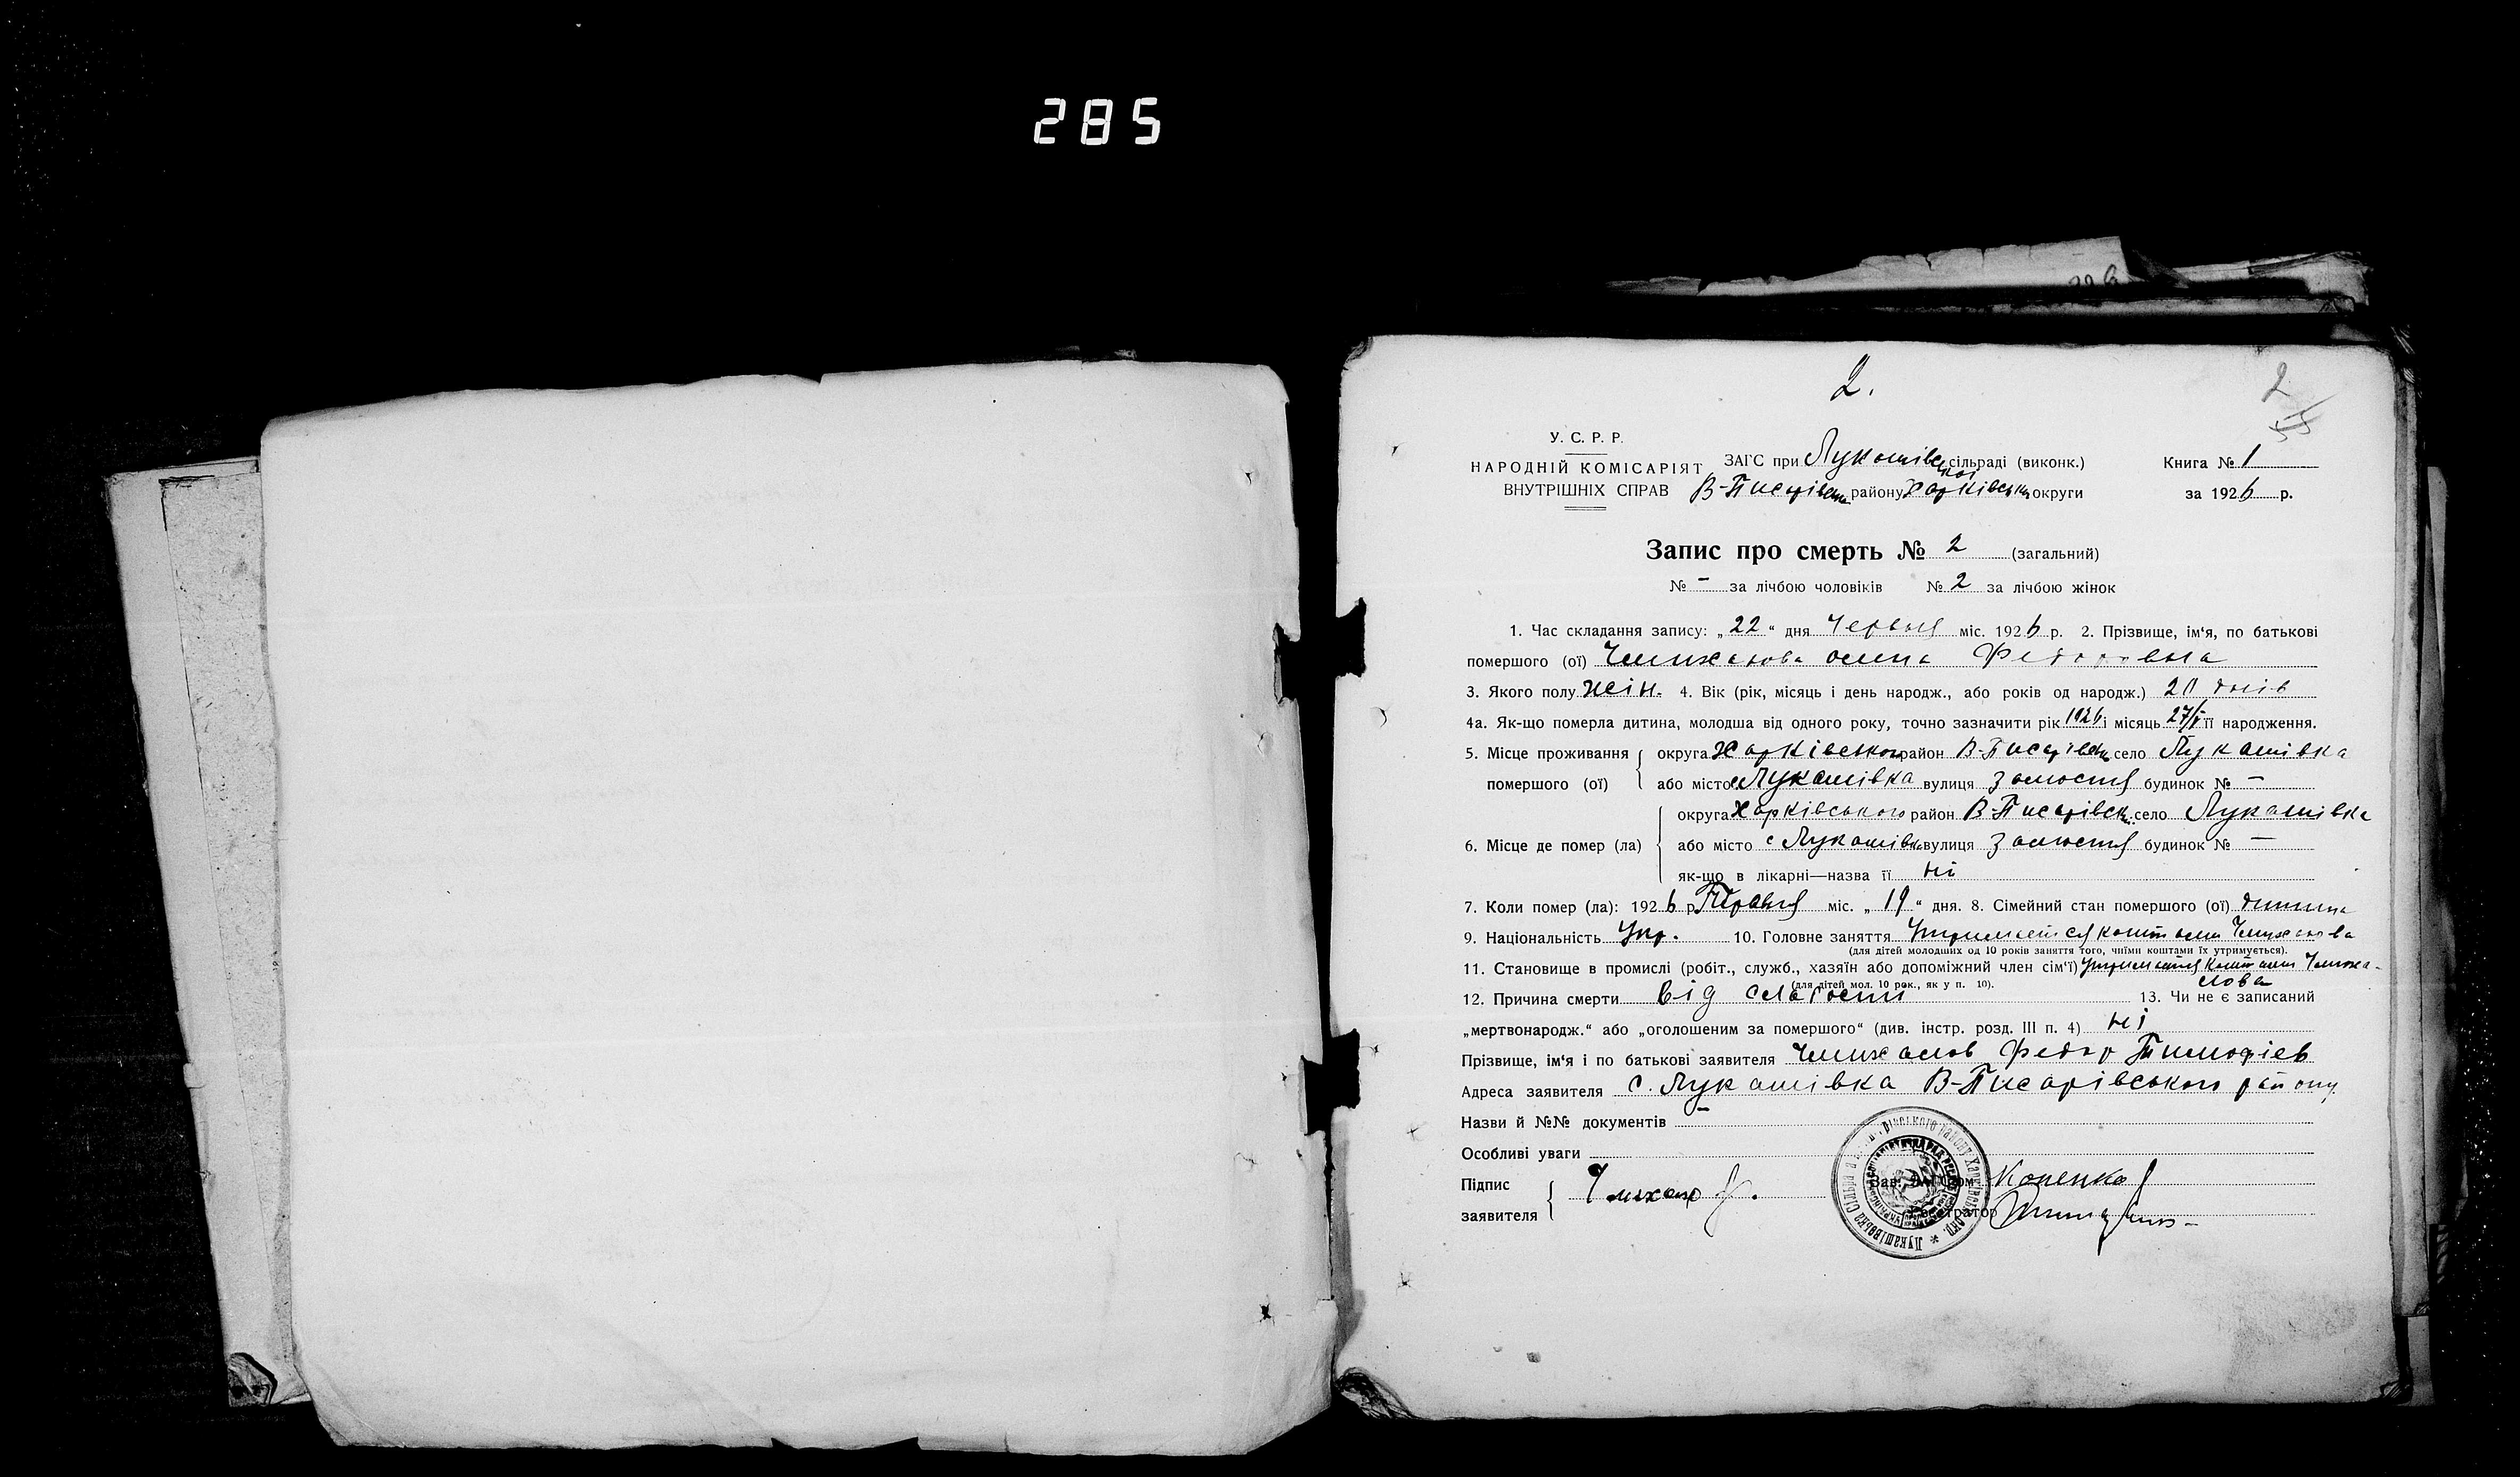 285
2.
2
55
У. С. Р. Р.
НАРОДНІЙ КОМІСАРІЯТ
ВНУТРІШНІХ СПРАВ
ЗАГС при Лукашівської сільраді (виконк.)
В-Писарівськ району Харківськ округи
Книга № 1
за 1926 р.
Запис про смерть № 2 (загальний)
№ - за лічбою чоловіків № 2 за лічбою жінок
1. Час складання запису: „22“ дня Червня міс. 1926 р. 2. Прізвище, ім‘я, по батькові
помершого (ої) Федоровна
3. Якого полу жін. 4. Вік (рік, місяць і день народж., або років од народж.) днів
4а. Як-що померла дитина, молодша від одного року, точно зазначити рік 1926 і місяць 27/V її народження.
5. Місце проживання помершого (ої) { округа Харківського район В-Писарівськ село Лукашівка
або місто с. Лукашівка вулиця Замостя будинок № -
6. Місце де помер (ла) { округа Харківського район В-Писарівськ. село Лукашівка
або місто с Лукашівка вулиця Замостя будинок № -
як-що в лікарні—назва її ні
7. Коли помер (ла): 1926 р. Травня міс. „19“ дня. 8. Сімейний стан помершого (ої) дитина
9. Національність Укр. 10. Головне заняття
(для дітей молодших од 10 років заняття того, чиїми коштами їх утримується).
11. Становище в промислі (робіт., служб., хазяїн або допоміжний член сім‘ї)
(для дітей мол. 10 рок., як у п. 10).
12. Причина смерти від слабости 13. Чи не є записаний
„мертвонародж.“ або „оголошеним за помершого“ (див. інстр. розд. III п. 4) ні
Прізвище, ім‘я і по батькові заявителя Федор Тимофіев
Адреса заявителя с. Лукашівка В-Писарівського району
Назви й №№ документів -
Особливі уваги
Підпис заявителя {
Зав. ЗАГСом
Реєстратор